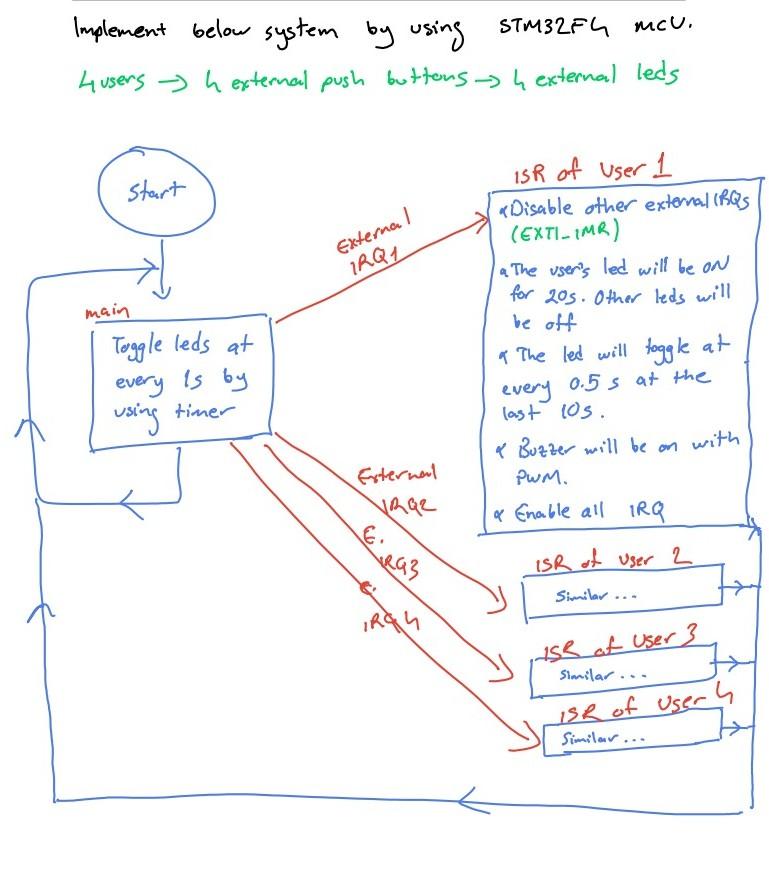 Implement below system by using STM32F4 MCU.
4 users → 4 external push buttons → 4 external leds
Start
main
Toggle leds at
every 1s by
using timer
External
IRQ1
ISR of User 1
Disable other external IRQs
(EXTI_IMR)
The user's led will be ON
for 20s. Other leds will
be off
The led will toggle at
every 0.5 s at the
last 10s.
Buzzer will be on with
PWM.
Enable all IRQ
External
IRQ2
E.
IRQ3
E.
IRQ4
ISR of User 2
Similar ...
ISR of User 3
Similar ...
ISR of User 4
Similar ...